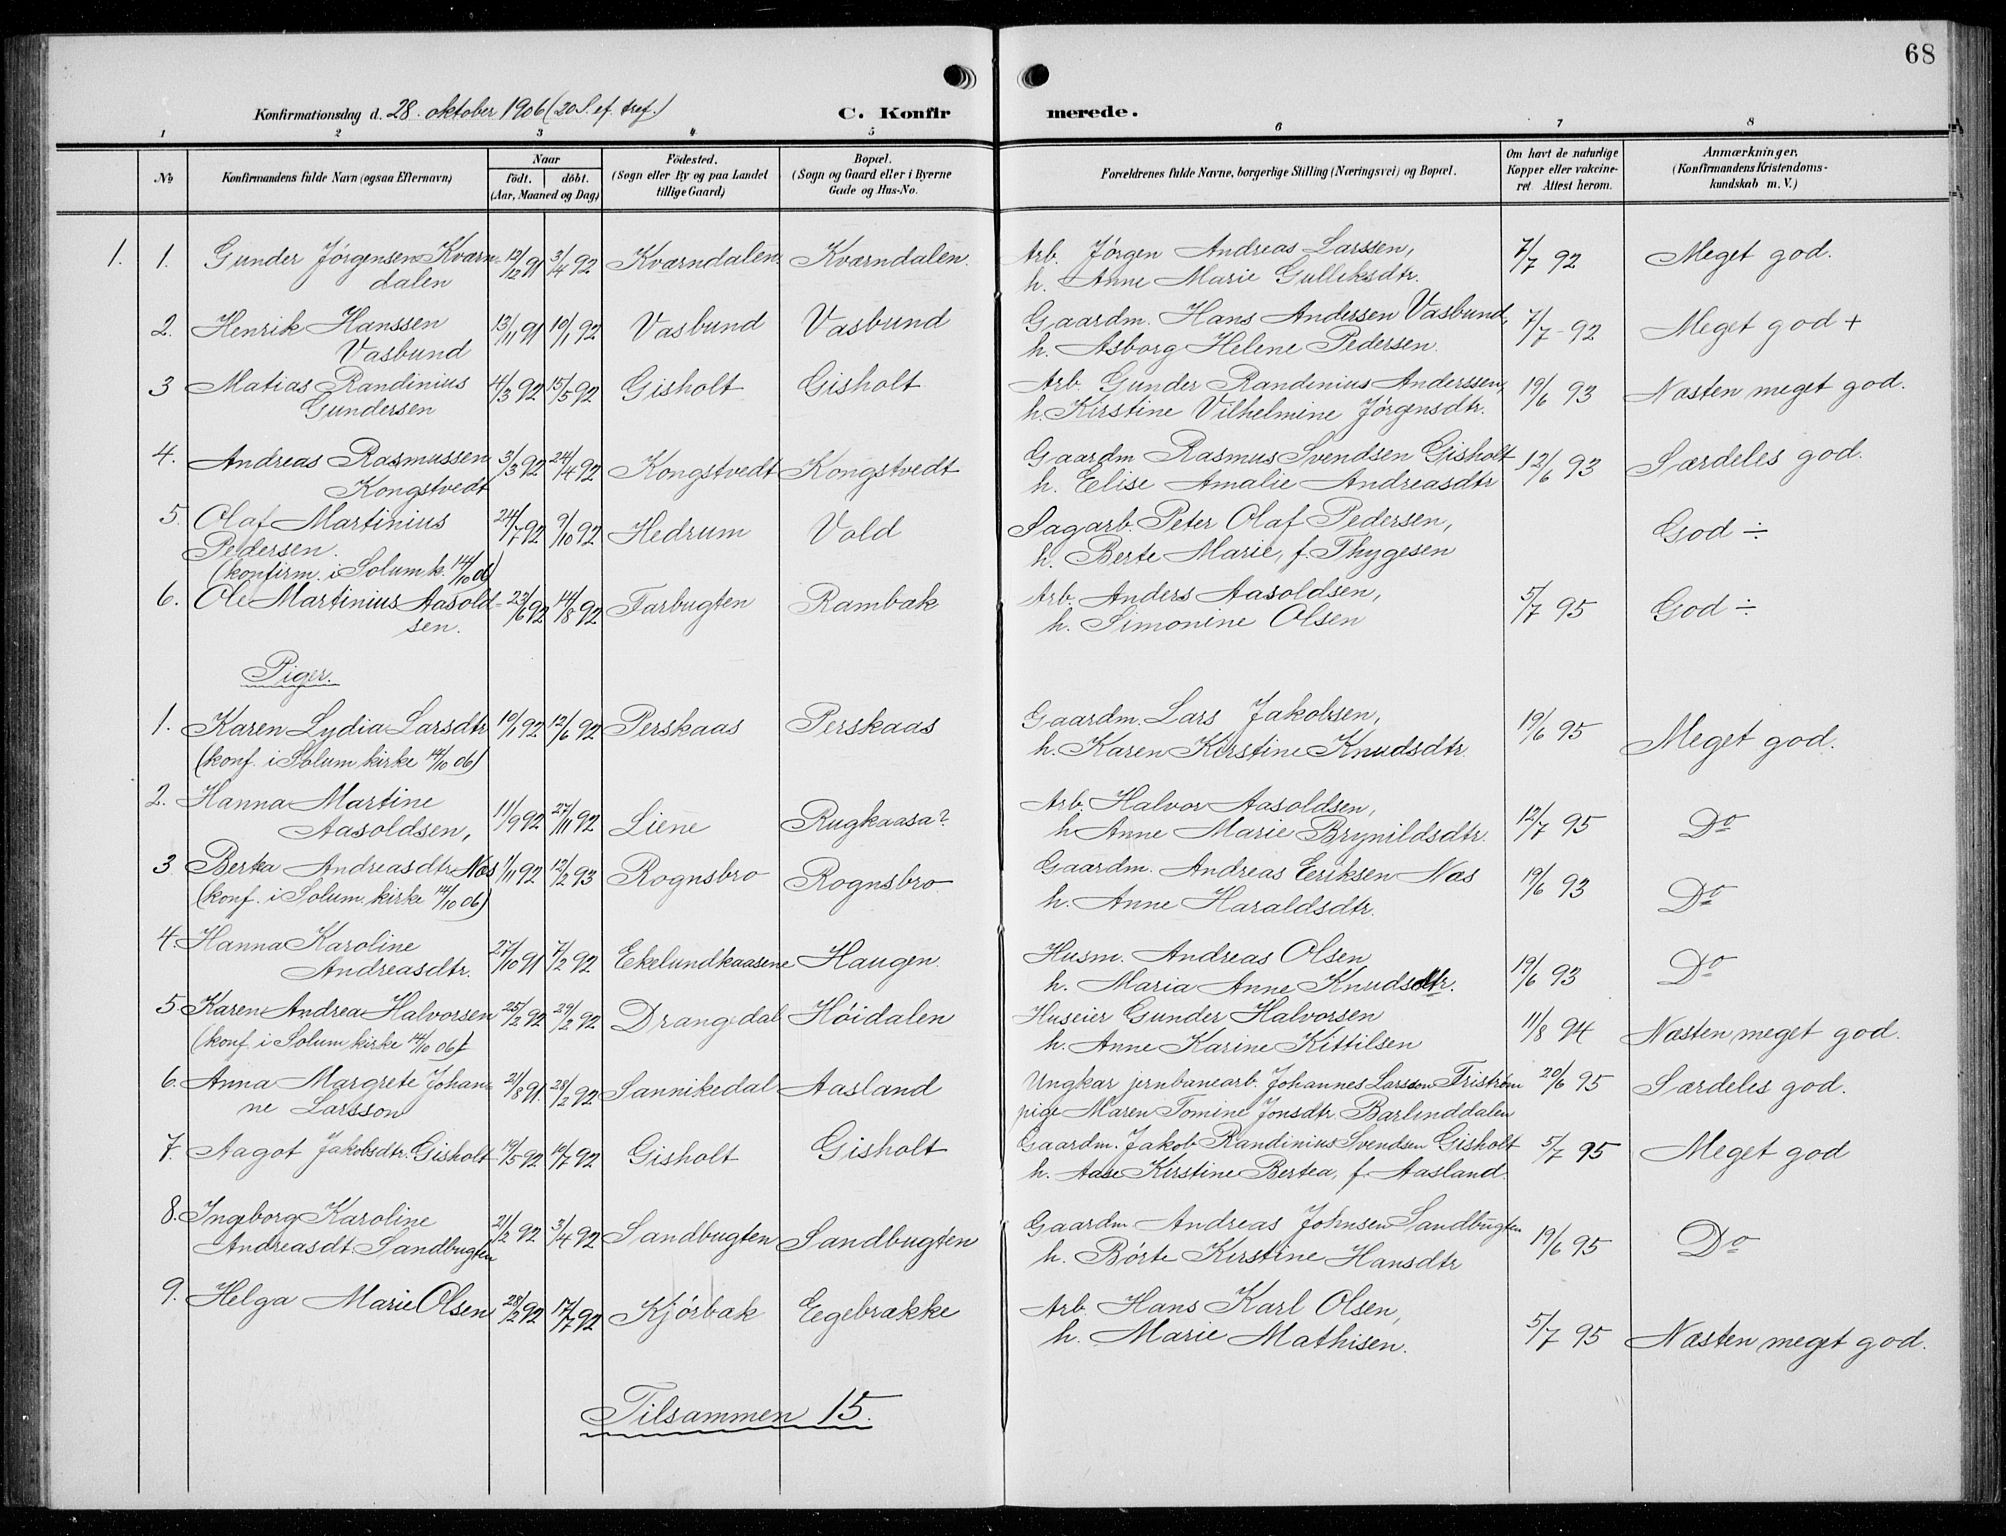 68
Konfirmationsdag d. 28. oktober 1906 (20 S. ef. tref.)
C. Konfirmerede.
1 2 3 4 5 6 7 8
No
Konfirmandens fulde Navn (ogsaa Efternavn)
Naar
født. døbt.
(Aar, Maaned og Dag)
Fødested.
(Sogn eller By og paa Landet
tillige Gaard)
Bopæl.
(Sogn og Gaard eller i Byerne
Gade og Hus-No.
Forældrenes fulde Navne, borgerlige Stilling (Næringsvei) og Bopæl.
Om havt de naturlige
Kopper eller vakcine-
ret Attest herom.
Anmærkninger.
(Konfirmandens Kristendoms-
kundskab m. V.)
1. 1. Gunder Jörgensen Kværn- 12/12 91 3/4 92 Kværndalen. Kværndalen. Arb. Jörgen Andreas Larssen, 7/7 92 Meget god.
dalen h. Anne Marie Gulleksdtr.
2. Henrik Hanssen 13/11 91 10/1 92 Vasbund Vasbund Gaardm. Hans Andersen Vasbund, 7/7 - 92 Meget god +
Vasbund h. Asborg Helene Pedersen.
3 Matias Randinius 14/3 92 15/5 92 Gisholt Gisholt Arb. Gunder Randinius Anderssen, 19/6 93 Næsten meget god.
Gundersen h. Kirstine Vilhelmine Jørgensdtr.
4. Andreas Rasmussen 3/3 92 24/4 92 Kongstvedt Kongstvedt Gaardm Rasmus Svendsen Gisholt 12/6 93 Særdeles god.
Kongstvedt h. Elise Amalie Andreasdtr
5. Olaf Martinius 24/7 92 9/10 92 Hedrum Vold Sagarb. Peter Olaf Pedersen, God ÷
Pedersen. h. Berte Marie, f. Thygesen
(konfirm. i Solum k. 14/10 06)
6. Ole Martinius Aasold- 23/6 92 14/8 92 Farbugten Rambæk Arb. Anders Aasoldsen, 5/7 95 God ÷
sen. h. Simonine Olsen
Piger.
1. Karen Lydia Larsdtr 10/1 92 12/6 92 Perskaas Perskaas Gaardm. Lars Jakobsen, 19/6 95 Meget god.
(konf. i Solum kirke 14/10 06) h. Karen Kirstine Knudsdtr.
2. Hanna Martine 11/9 92 27/11 92 Liene Rugkaasa? Arb. Halvor Aasoldsen, 12/7 95 Do
Aasoldsen, h Anne Marie Brynildsdtr.
3 Bertea Andreasdtr. Næs 1/11 92 12/2 93 Rognsbro Rognsbro Gaardm. Andreas Eriksen Næs 19/6 93 Do
(konf. i Solum kirke 14/10 06) h. Anne Haraldsdtr.
4. Hanna Karoline 27/10 91 7/2 92 Ekelundkaasene Haugen. Husm. Andreas Olsen 19/6 93 Do
Andreasdtr. h. Maria Anne Knudsdtr.
5. Karen Andrea Halvorsen 25/2 92 29/2 92 Drangedal Höidalen Huseier Gunder Halvorsen 11/8 94 Næsten meget god.
(konf. i Solum kirke 14/10 06) h. Anne Karine Kittilsen
6. Anna Margrete Johan- 21/8 91. 28/2 92 Sannikedal Aasland Ungkar jernbanearb. Johannes Larsson Friström 20/6 95 Særdeles god.
ne Larsson pige Maren Tomine Jonsdtr. Barlinddalen
7. Aagot Jakobsdtr. Gisholt 19/5 92 10/7 92 Gisholt Gisholt Gaardm. Jakob Randinius Svendsen Gisholt 5/7 95 Meget god
h. Aase Kirstine Bertea, f. Aasland.
8. Ingeborg Karoline 21/2 92 3/4 92 Sandbugten Sandbugten Gaardm Andreas Johnsen Sandbugten 19/6 95 Do
Andreasdt. Sandbugten h. Börte Kirstine Hansdtr
9. Helga Marie Olsen 28/2 92 17/7 92 Kjörbæk Eegebrække Arb. Hans Karl Olsen, 5/7 95 Næsten meget god.
h. Marie Mathisen.
Tilsammen 15.